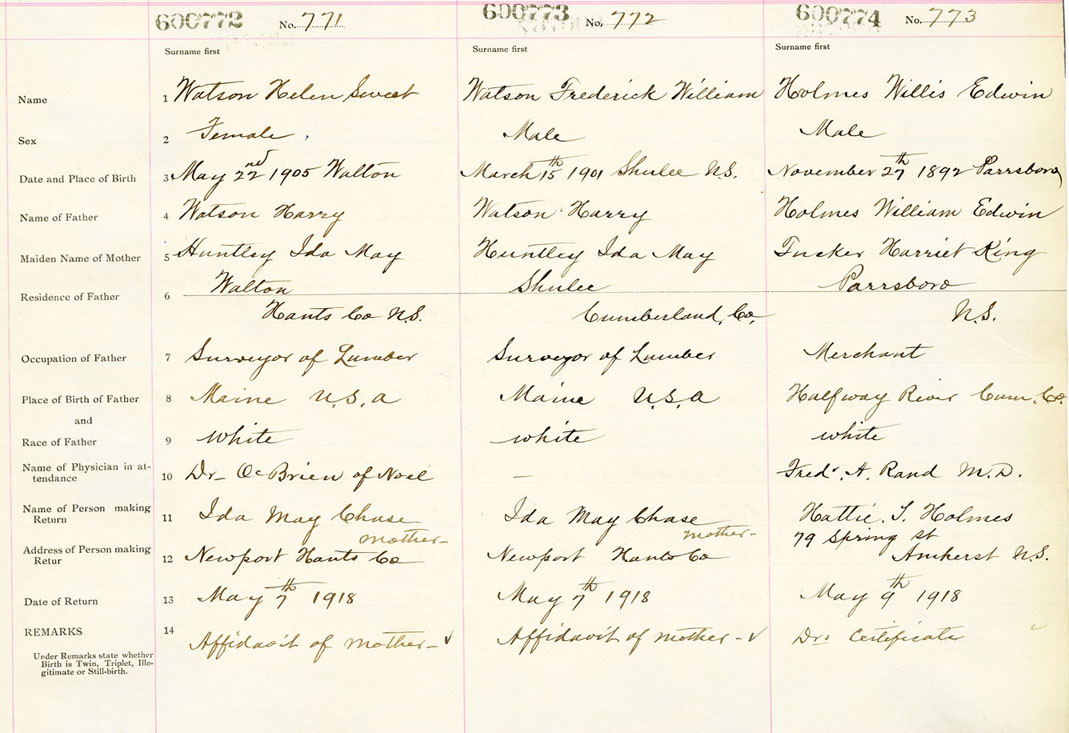 600772 No. 771 600773 No. 772 600774 No. 773
Surname first Surname first Surname first
Name 1 Watson Helen Sweet Watson Frederick William Holmes Willis Edwin
Sex 2 Female Male Male
Date and Place of Birth 3 May 22nd 1905 Walton March 15th 1901 Shulee N.S. November 27th 1892 Parrsboro
Name of Father 4 Watson Harry Watson Harry Holmes William Edwin
Maiden Name of Mother 5 Huntley Ida May Huntley Ida May Tucker Harriet King
Walton Shulee Parrsboro
Residence of Father 6
Hants Co N.S. Cumberland, Co, N.S.
Occupation of Father 7 Surveyor of Lumber Surveyor of Lumber Merchant
Place of Birth of Father 8 Maine U.S.A Maine U.S.A Halfway River Cum. Co.
and
Race of Father 9 white white white
Name of Physician in at-
tendance 10 Dr- O'Brien of Noel — Fredk. A. Rand M.D.
Name of Person making
Return 11 Ida May Chase Ida May Chase Hattie. T. Holmes
mother- mother- 79 Spring St
Address of Person making
Retur 12 Newport Hants Co Newport Hants Co Amherst N.S.
Date of Return 13 May 7th 1918 May 7th 1918 May 9th 1918
REMARKS 14 Affidavit of mother- Affidavit of mother- Drs Certificate
Under Remarks state whether
Birth is Twin, Triplet, Ille-
gitimate or Still-birth.